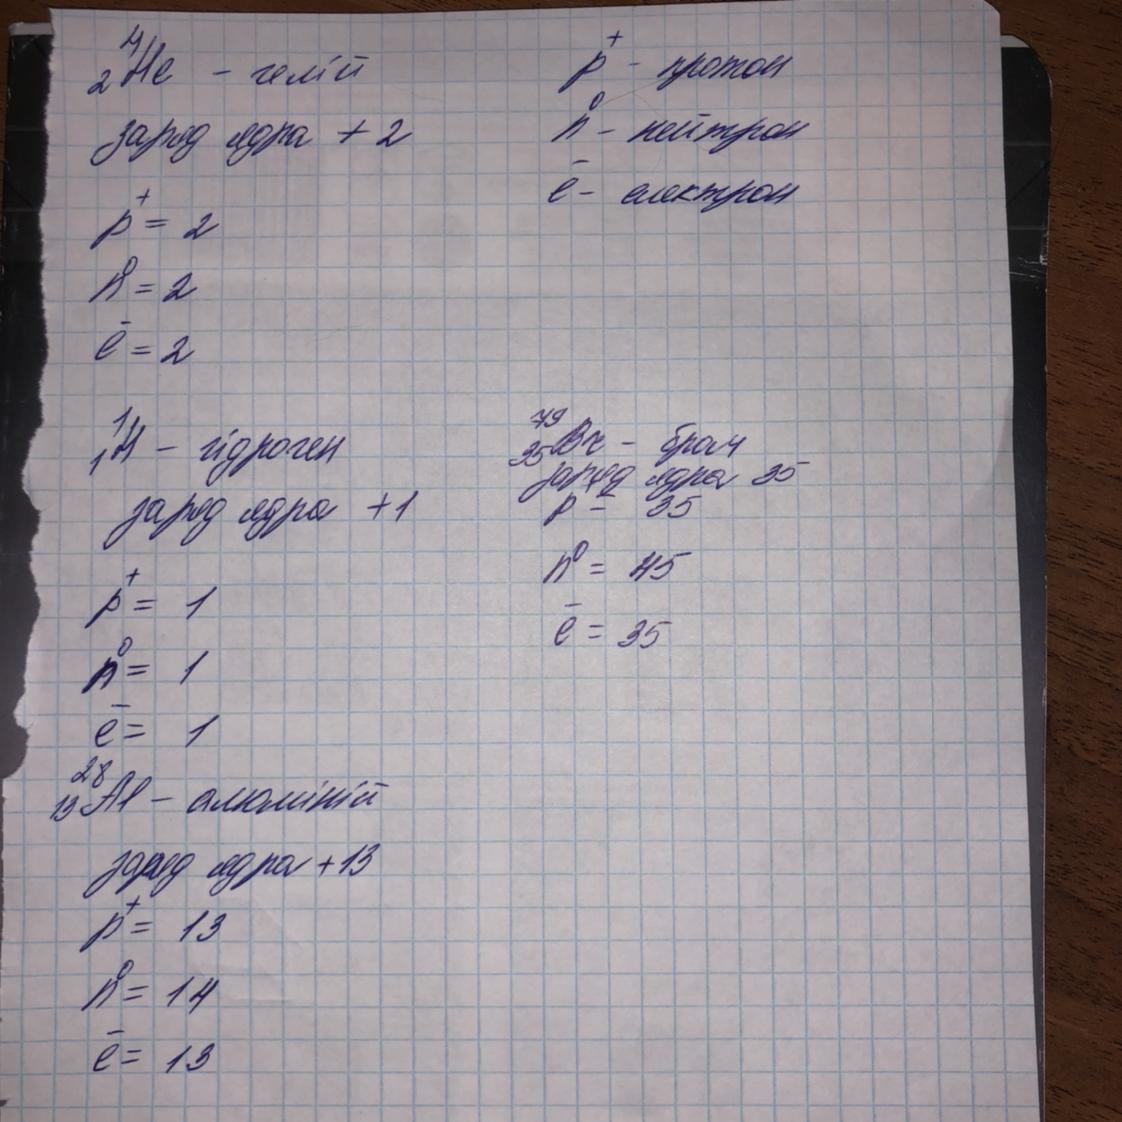 ⁴₂He - гелій
заряд ядра +2
p⁺ = 2
n⁰ = 2
e⁻ = 2
p⁺ - протон
n⁰ - нейтрон
e⁻ - електрон
¹₁H - гідроген
заряд ядра +1
p⁺ = 1
n⁰ = 1
e⁻ = 1
⁷⁹₃₅Br - бром
заряд ядра 35
p⁺ = 35
n⁰ = 45
e⁻ = 35
²⁸₁₃Al - алюміній
заряд ядра +13
p⁺ = 13
n⁰ = 14
e⁻ = 13